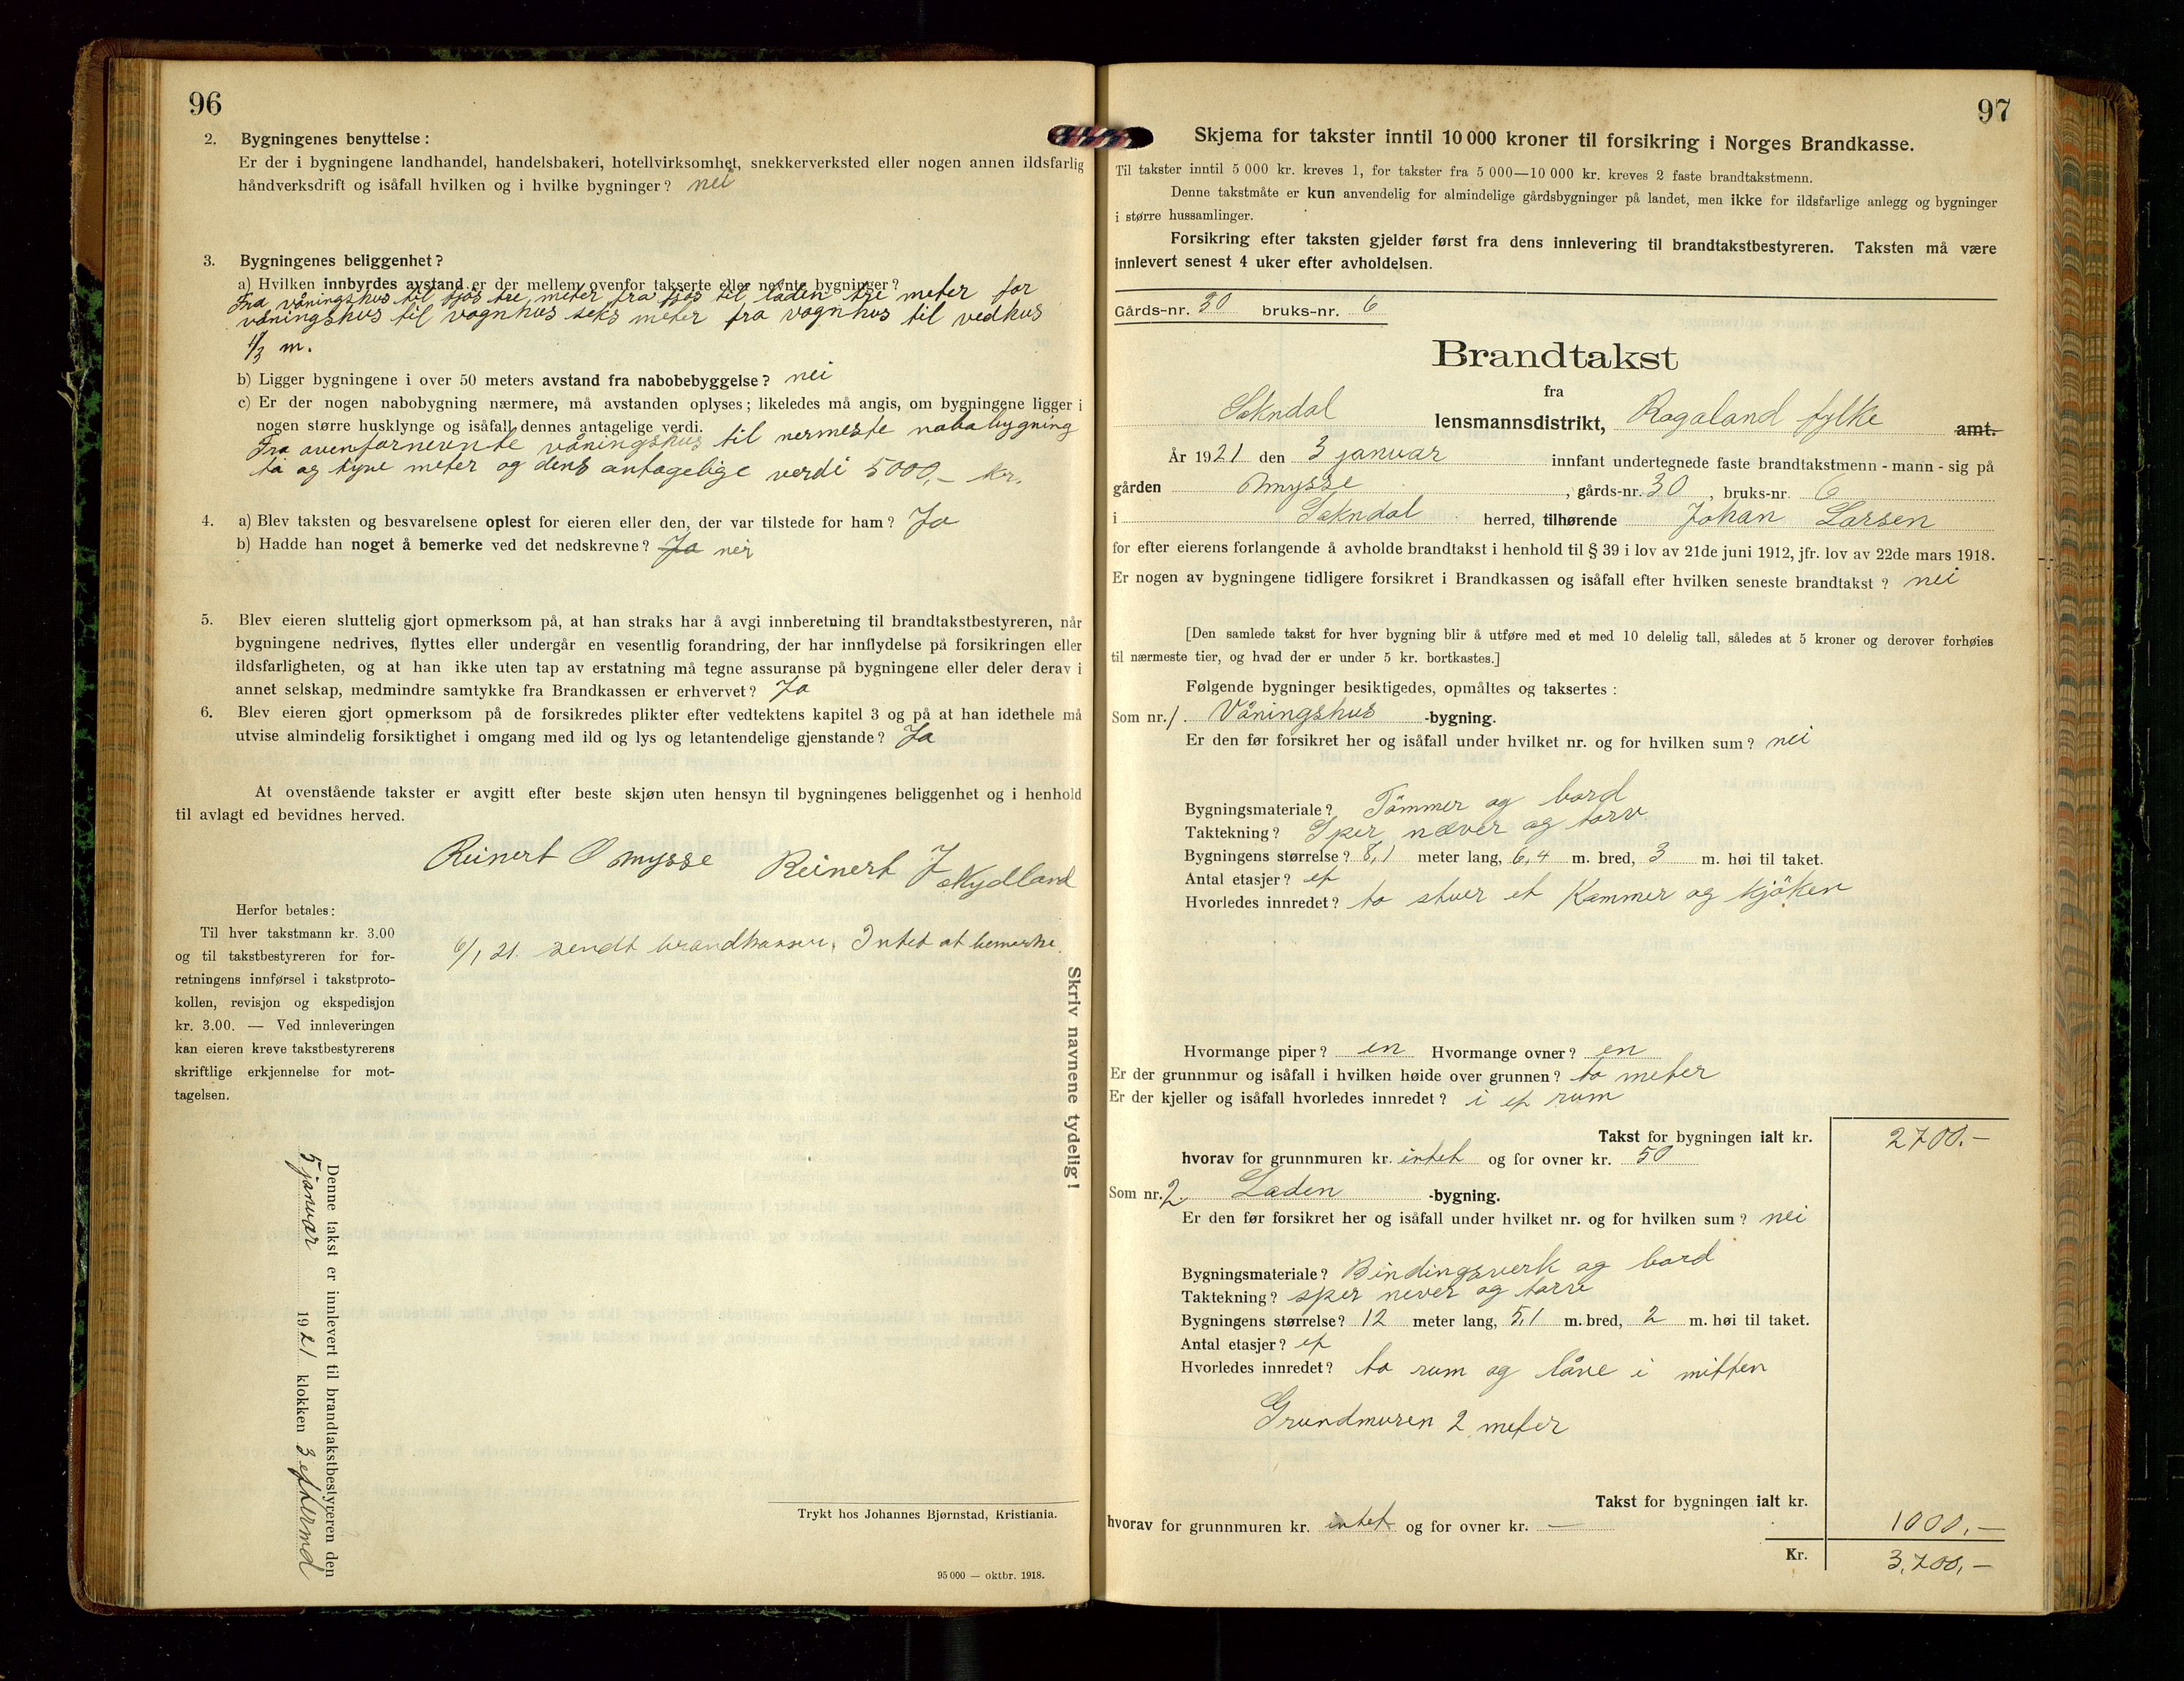 96
2. Bygningenes benyttelse:
Er der i bygningene landhandel, handelsbakeri, hotellvirksomhet, snekkerverksted eller nogen annen ildsfarlig
håndverksdrift og isåfall hvilken og i hvilke bygninger? nei
3. Bygningenes beliggenhet?
a) Hvilken innbyrdes avstand er der mellem ovenfor takserte eller nevnte bygninger?
Fra våningshus til fjös tre meter fra fjös til laden tre meter for
våningshus til vognhus seks meter fra vognhus til vedhus
1/3 m.
b) Ligger bygningene i over 50 meters avstand fra nabobebyggelse? nei
c) Er der nogen nabobygning nærmere, må avstanden oplyses; likeledes må angis, om bygningene ligger i
nogen større husklynge og isåfall dennes antagelige verdi.
Fra ovenfornevnte våningshus til nermeste nabobygning
to og tyve meter og dens antagelige verdi 5000,- kr.
4. a) Blev taksten og besvarelsene oplest for eieren eller den, der var tilstede for ham? Ja
b) Hadde han noget å bemerke ved det nedskrevne? Ja nei
5. Blev eieren sluttelig gjort opmerksom på, at han straks har å avgi innberetning til brandtakstbestyreren, når
bygningene nedrives, flyttes eller undergår en vesentlig forandring, der har innflydelse på forsikringen eller
ildsfarligheten, og at han ikke uten tap av erstatning må tegne assuranse på bygningene eller deler derav i
annet selskap, medmindre samtykke fra Brandkassen er erhvervet? Ja
6. Blev eieren gjort opmerksom på de forsikredes plikter efter vedtektens kapitel 3 og på at han idethele må
utvise almindelig forsiktighet i omgang med ild og lys og letantendelige gjenstande? Ja
At ovenstående takster er avgitt efter beste skjøn uten hensyn til bygningenes beliggenhet og i henhold
til avlagt ed bevidnes herved.
Reinert O Mysse Reinert J Nydland
6/1 21. sendt brandkassen, Intet at bemerke
Herfor betales:
Til hver takstmann kr. 3.00
og til takstbestyreren for for-
retningens innførsel i takstproto-
kollen, revisjon og ekspedisjon
kr. 3.00. — Ved innleveringen
kan eieren kreve takstbestyrerens
skriftlige erkjennelse for mot-
tagelsen.
Skriv navnene tydelig!
Denne takst er innlevert til brandtakstbestyreren den
5 januar 1921 klokken 3 efttermd
Trykt hos Johannes Bjørnstad, Kristiania.
95 000 — oktbr. 1918.
97
Skjema for takster inntil 10 000 kroner til forsikring i Norges Brandkasse.
Til takster inntil 5 000 kr. kreves 1, for takster fra 5 000—10 000 kr. kreves 2 faste brandtakstmenn.
Denne takstmåte er kun anvendelig for almindelige gårdsbygninger på landet, men ikke for ildsfarlige anlegg og bygninger
i større hussamlinger.
Forsikring efter taksten gjelder først fra dens innlevering til brandtakstbestyreren. Taksten må være
innlevert senest 4 uker efter avholdelsen.
Gårds-nr. 30 bruks-nr. 6
Brandtakst
fra
Sokndal lensmannsdistrikt, Rogaland fylke amt.
År 1921 den 3 januar innfant undertegnede faste brandtakstmenn - mann - sig på
gården Mysse, gårds-nr. 30, bruks-nr. 6
i Sokndal herred, tilhørende Johan Larsen
for efter eierens forlangende å avholde brandtakst i henhold til § 39 i lov av 21de juni 1912, jfr. lov av 22de mars 1918.
Er nogen av bygningene tidligere forsikret i Brandkassen og isåfall efter hvilken seneste brandtakst? nei
[Den samlede takst for hver bygning blir å utføre med et med 10 delelig tall, således at 5 kroner og derover forhøies
til nærmeste tier, og hvad der er under 5 kr. bortkastes.]
Følgende bygninger besiktigedes, opmåltes og taksertes:
Som nr. 1. Våningshus -bygning.
Er den før forsikret her og isåfall under hvilket nr. og for hvilken sum? nei
Bygningsmateriale? Tömmer og bord
Taktekning? Sper næver og torv
Bygningens størrelse? 8,1 meter lang, 6,4 m. bred, 3 m. høi til taket.
Antal etasjer? et
Hvorledes innredet? to stuer et Kammer og kjöken
Hvormange piper? en Hvormange ovner? en
Er der grunnmur og isåfall i hvilken høide over grunnen? to meter
Er der kjeller og isåfall hvorledes innredet? i et rum
Takst for bygningen ialt kr. 2700.-
hvorav for grunnmuren kr. intet og for ovner kr. 50
Som nr. 2. Laden -bygning.
Er den før forsikret her og isåfall under hvilket nr. og for hvilken sum? nei
Bygningsmateriale? Bindingsverk og bord
Taktekning? sper never og torve
Bygningens størrelse? 12 meter lang, 5,1 m. bred, 2 m. høi til taket.
Antal etasjer? et
Hvorledes innredet? to rum og låve i mitten
Grundmuren 2 meter
Takst for bygningen ialt kr.
hvorav for grunnmuren kr. intet og for ovner kr. — 1000,-
Kr. 3.700,-